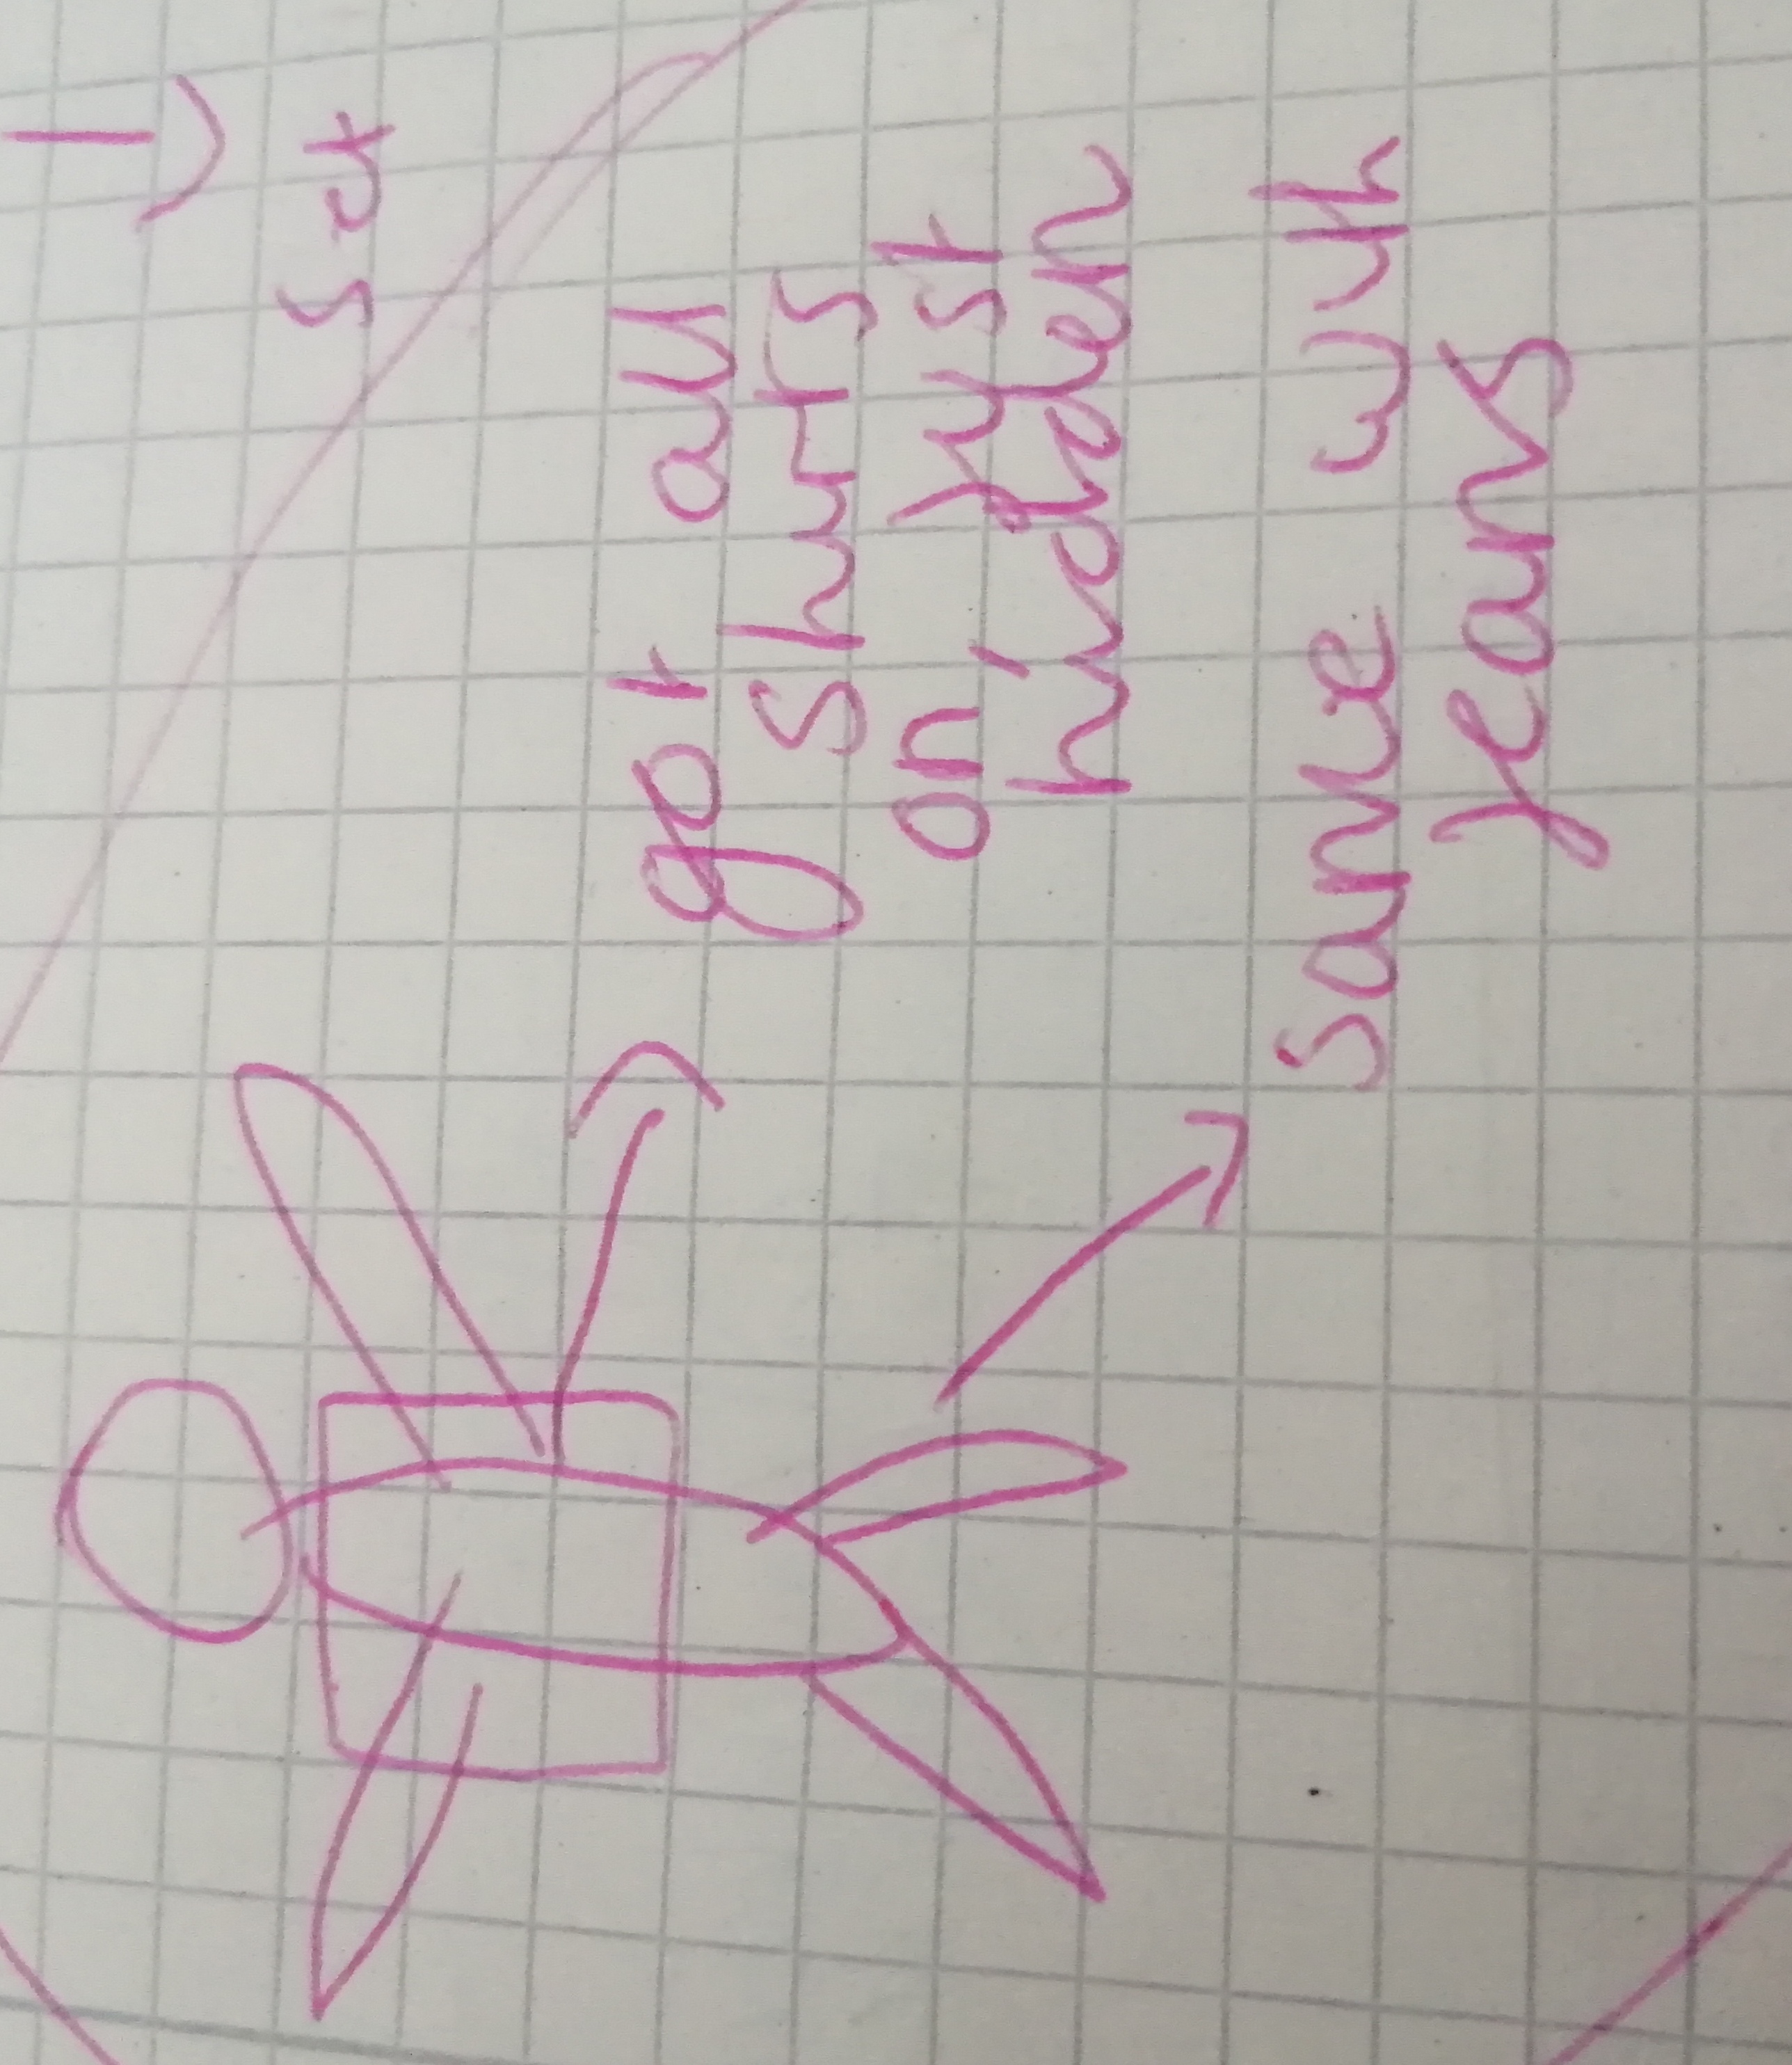 set
got all
shirts
on, just
hidden
same with
jeans